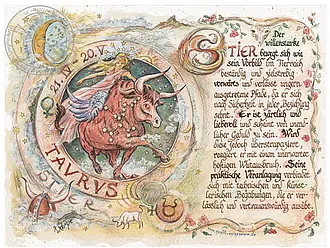 21. IV. 20. V.
TAURUS
STIER
STIER
Der
willensstarke
bewegt sich wie
sein Vorbild im Tierreich
beständig und zielstrebig
vorwärts und verlässt ungern
ausgetretene Pfade, da er sich
nach Sicherheit in jeder Beziehung
sehnt. Er ist zärtlich und
liebevoll und scheint von unend-
licher Geduld zu sein. Wird
diese jedoch überstrapaziert,
reagiert er mit einem unerwartet
heftigen Wutausbruch. Seine
praktische Veranlagung verbindet
sich mit technischen und künst-
lerischen Begabungen, die er ver-
lässlich und vertrauenswürdig ausübt.